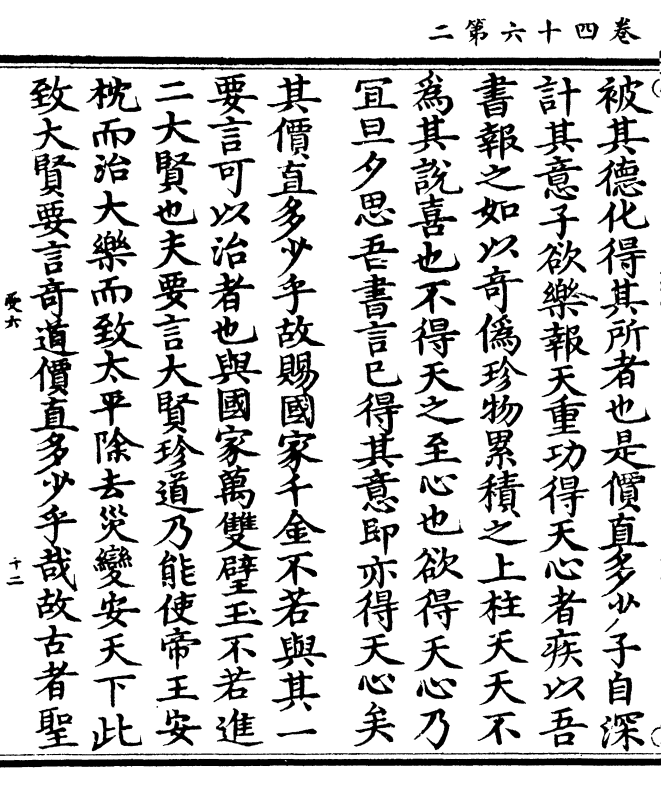 卷四十六第二
被其德化得其所者也是價直多少子自深
計其意子欲樂報天重功得天心者疾以吾
書報之如以奇偽珍物累積之上柱天天不
為其說喜也不得天之至心也欲得天心乃
冝旦夕思吾書言已得其意即亦得天心矣
其價直多少乎故賜國家千金不若與其一
要言可以治者也與國家萬雙璧玉不若進
二大賢也夫要言大賢珍道乃能使帝王安
枕而治大樂而致太平除去災變安天下此
致大賢要言奇道價直多少乎哉故古者聖
受六
十二